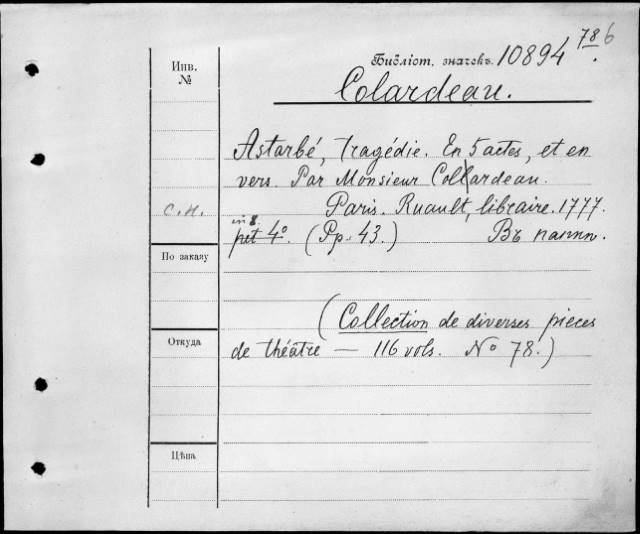 Инв. №
Библіот. значекъ. 10894 78.6
Colardeau.
Astarbé, Tragédie. En 5 actes, et en
vers. Par Monsieur Collardeau.
С.Н. Paris. Ruault, libraire. 1777.
in 8.
pet 4º. (Pp. 43.) Въ папп.
По заказу
(Collection de diverses pieces
Откуда
de théâtre — 116 vols. Nº 78.)
Цѣна